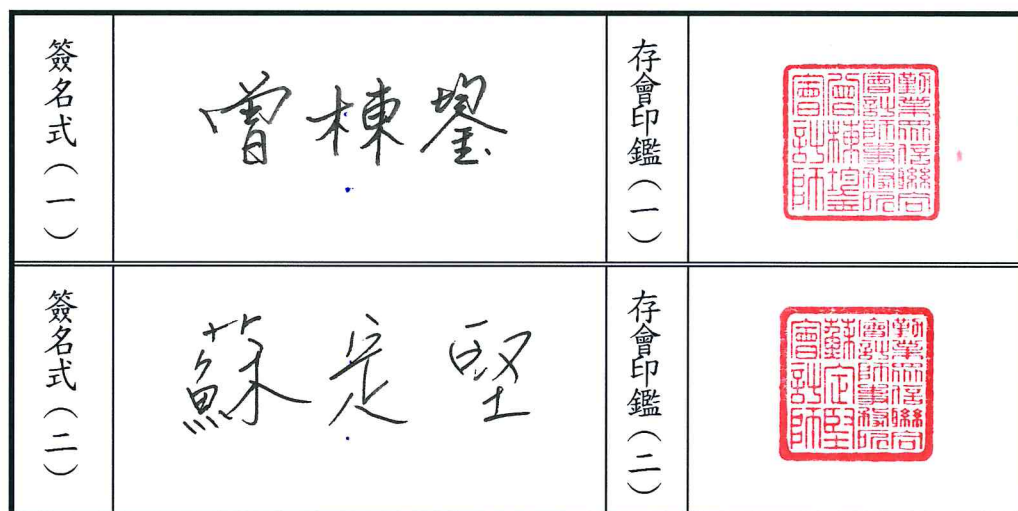 簽名式（一）
曾棟鋆
存會印鑑（一）
勤業眾信聯合
會計師事務所
曾棟鋆
會計師
簽名式（二）
蘇定堅
存會印鑑（二）
勤業眾信聯合
會計師事務所
蘇定堅
會計師